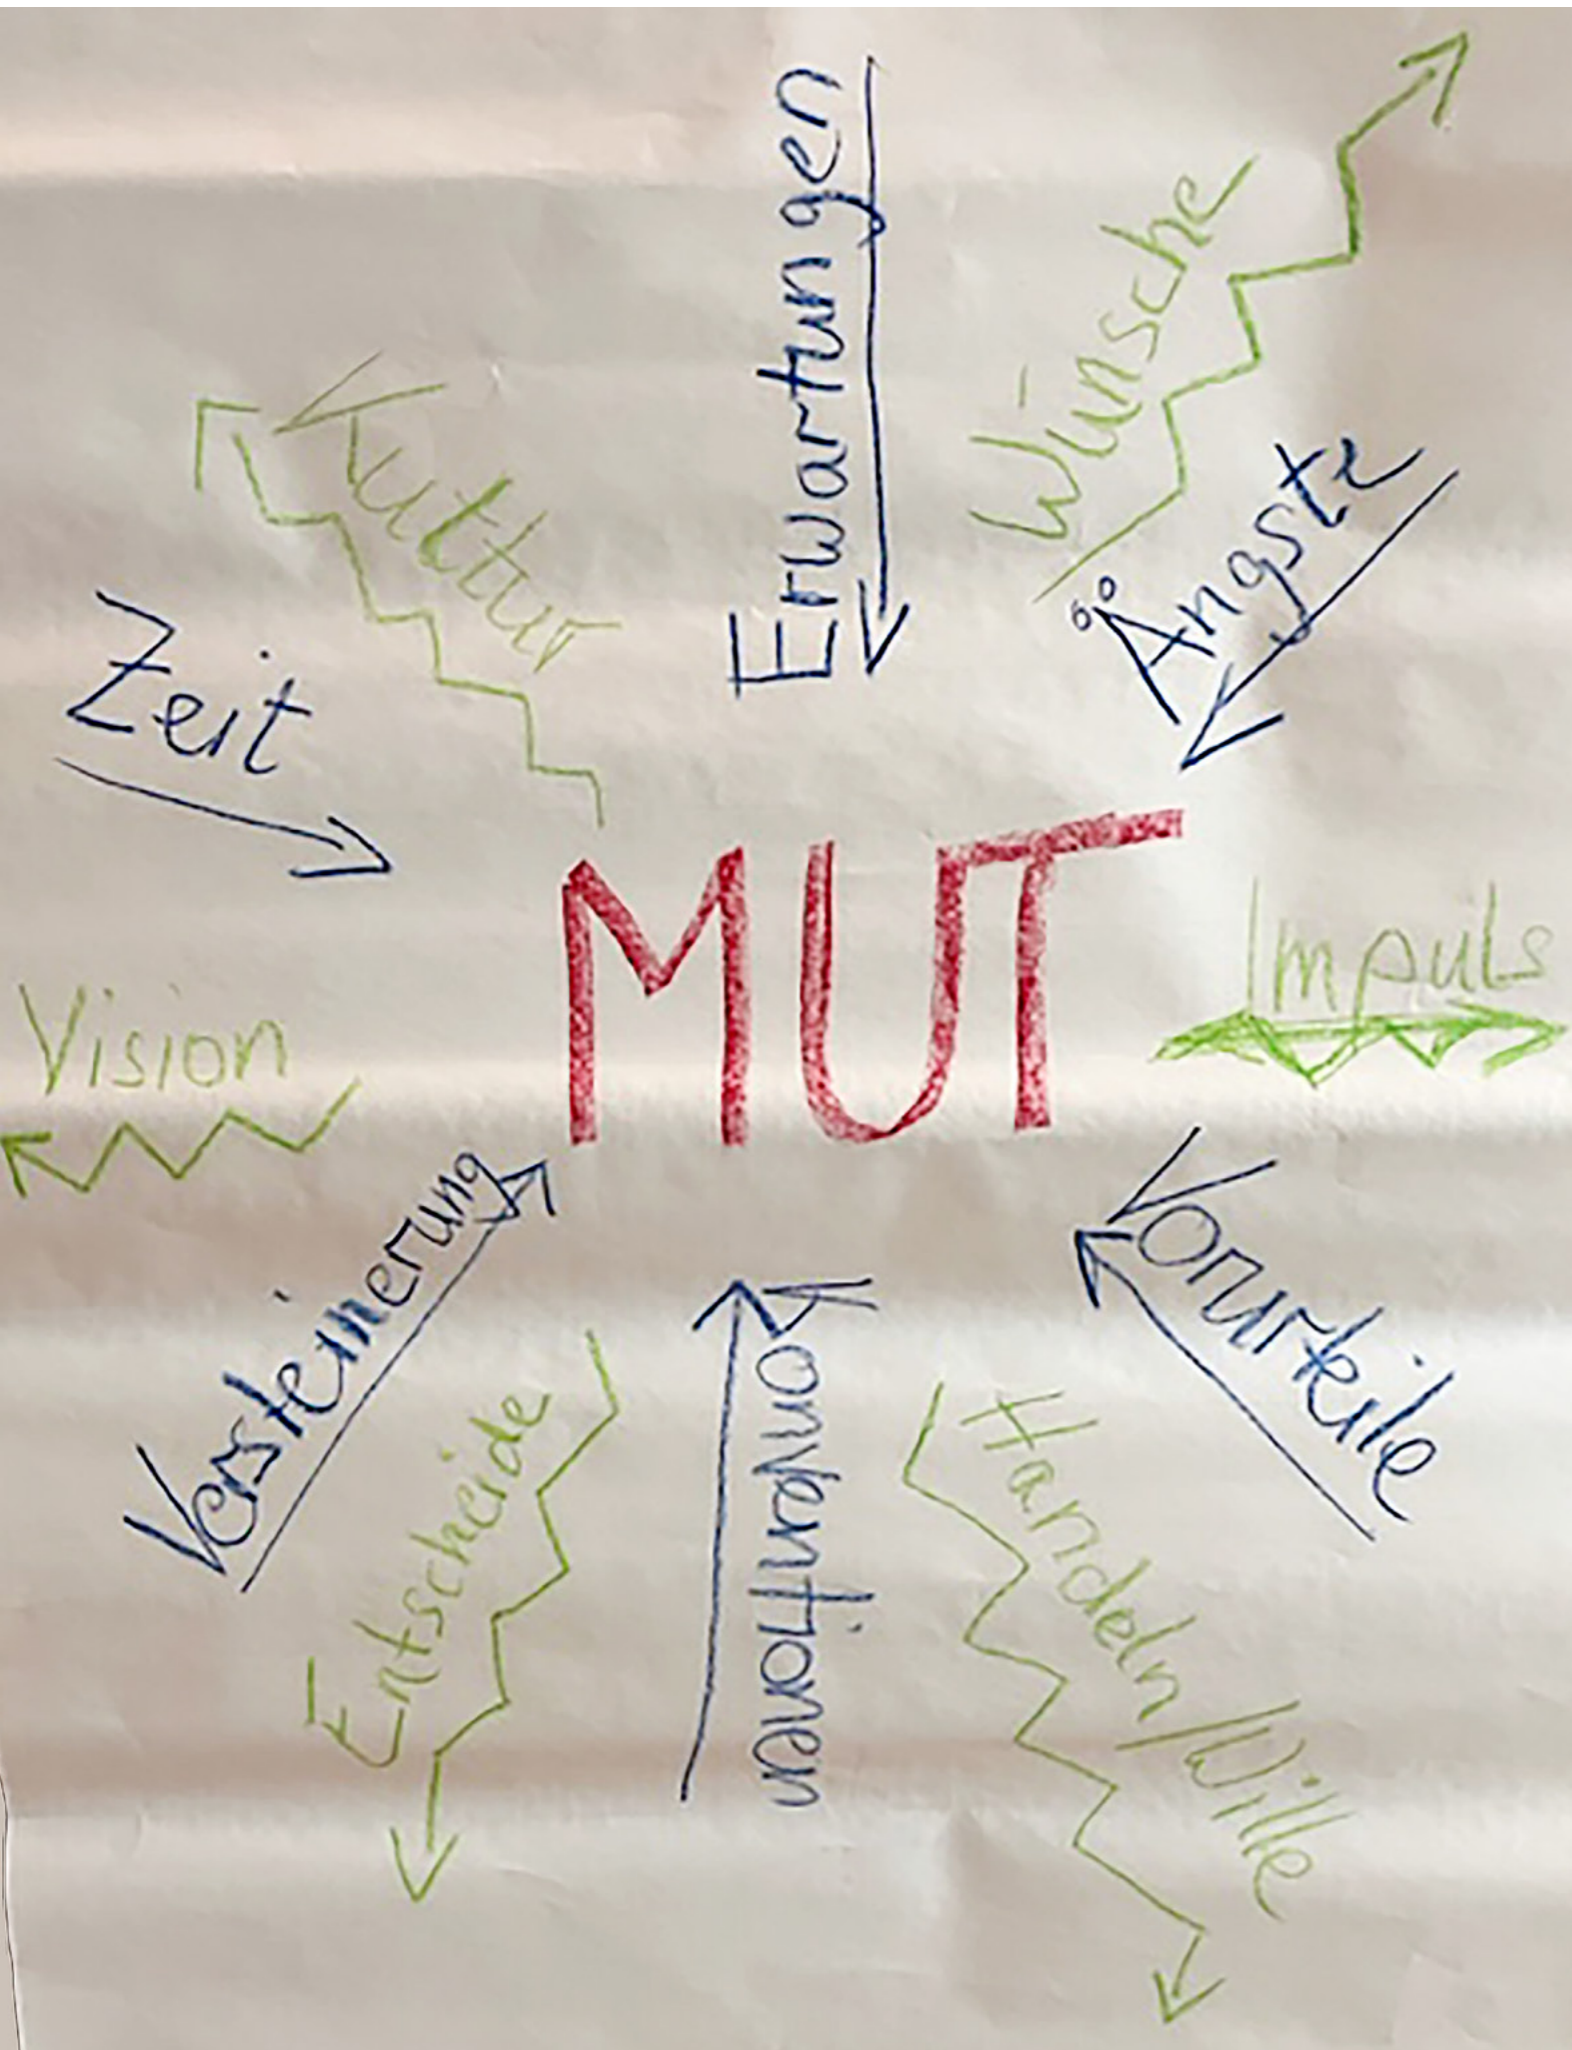 Erwartungen
Wünsche
Kultur
Ängste
Zeit
MUT
Impuls
Vision
Vorurteile
Versteinerung
Konventionen
Entscheide
Handeln/Wille